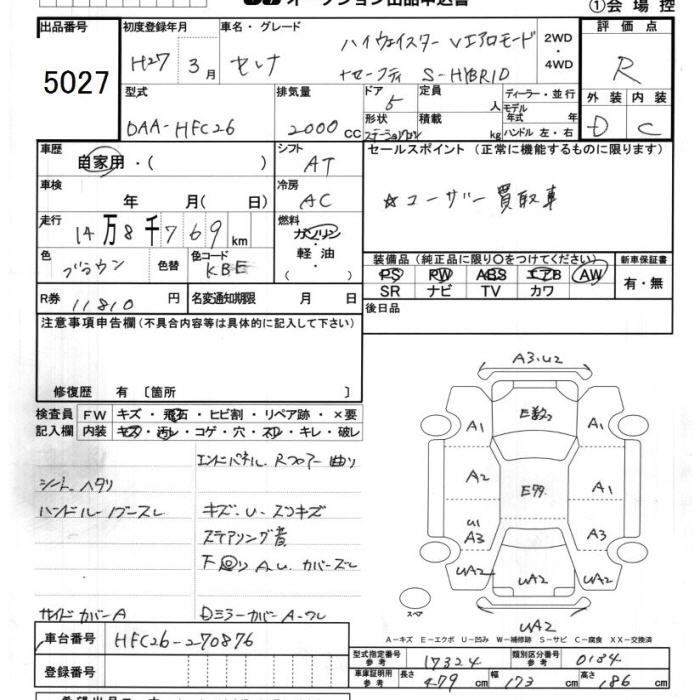 オークション出品申込書
①会場控
出品番号
5027
初度登録年月
H27年3月
車名・グレード
セレナ
ハイウェイスター Vエアロモード
+セーフティ S-HYBRID
2WD
・
4WD
評価点
R
外装 内装
D C
型式
DAA-HFC26
排気量
2000 CC
ドア
5
形状
ステーションワゴン
定員
人
積載
kg
ディーラー・並行
モデル年式 年
ハンドル 左・右
車歴
自家用・( )
シフト
AT
車検
年 月(日)
冷房
AC
走行
14万8千769km
燃料
ガソリン
・
軽油
・
( )
色
ブラウン
色替
色コード
KBE
R券
11810円
名変通知期限 月 日
セールスポイント(正常に機能するものに限ります)
☆ユーザー買取車
装備品(純正品に限り○をつけてください)
PS PW ABS エアB AW
SR ナビ TV カワ
新車保証書
有・無
後日品
注意事項申告欄(不具合内容等は具体的に記入して下さい)
修復歴 有〔箇所 〕
検査員記入欄
FW キズ・飛石・ヒビ割・リペア跡・×要
内装 キズ・汚レ・コゲ・穴・スレ・キレ・破レ
エンドパネル、Rフロアー曲り
シートヘタリ
ハンドル・ノブスレ
キズ、U、スリキズ
ステアリング音
下回りA、U、カバーズレ
サイドカバーA
Dミラーカバー A-ワレ
A3.U2
E数コ
A1
A1
A2
E多
A1
U1
A3
A3
UA2
UA2
UA2
スペア
A-キズ E-エクボ U-凹み W-補修跡 S-サビ C-腐食 XX-交換済
車台番号
HFC26-270876
登録番号
型式指定番号
参考
17324
類別区分番号
参考
0184
車庫証明用
参考
長さ 479cm
幅 173cm
高さ 186cm
希望出品コーナー